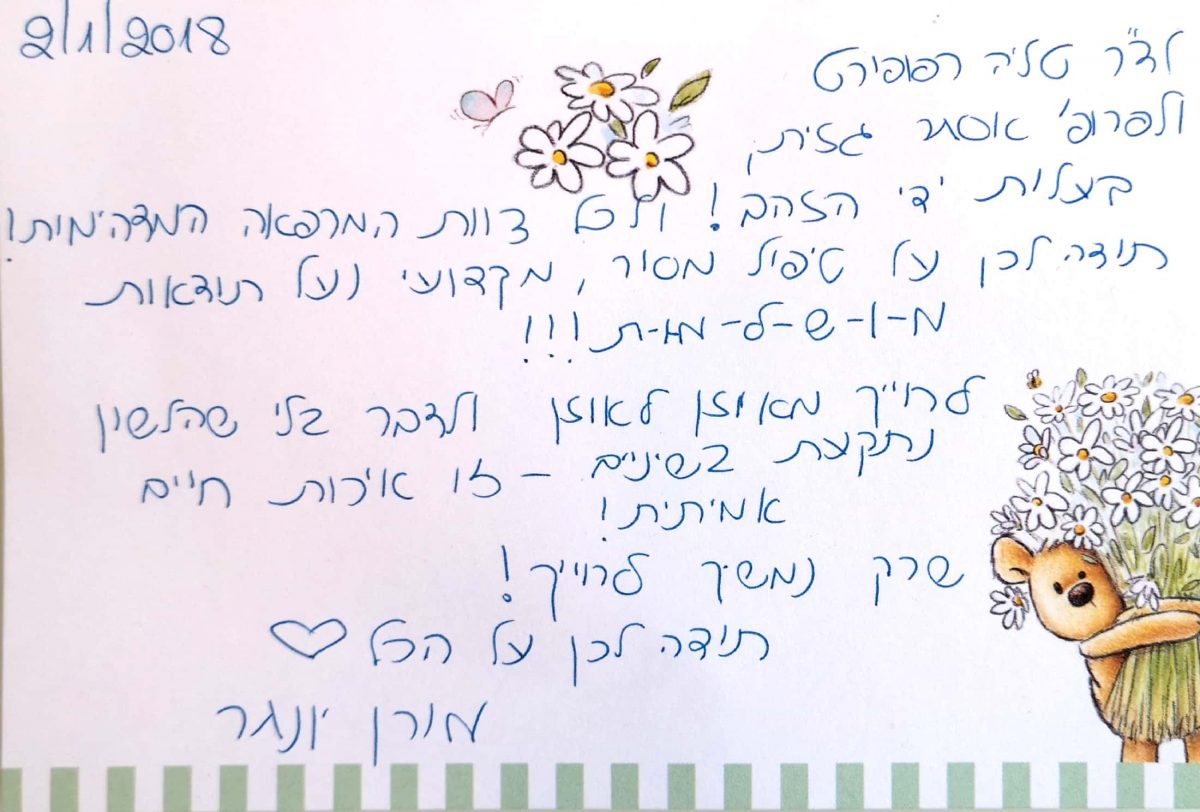 2/1/2018
לד"ר טליה רפופורט
ולפרופ' אסתר גזית,
בעלות ידי הזהב! ולכל צוות המרפאה המדהימות!
תודה לכן על טיפול מסור, מקצועי ועל תוצאות
מ-ו-ש-ל-מ-ו-ת!!!
לחייך מאוזן לאוזן ולדבר בלי שהלשון
נתקעת בשיניים - זו איכות חיים
אמיתית!
שרק נמשיך לחייך!
תודה לכן על הכל
מורן יונגר